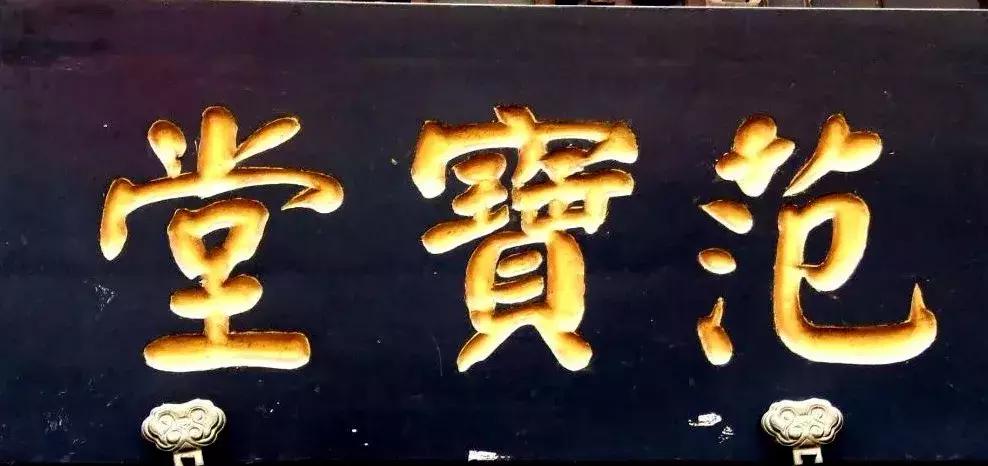 范寶堂